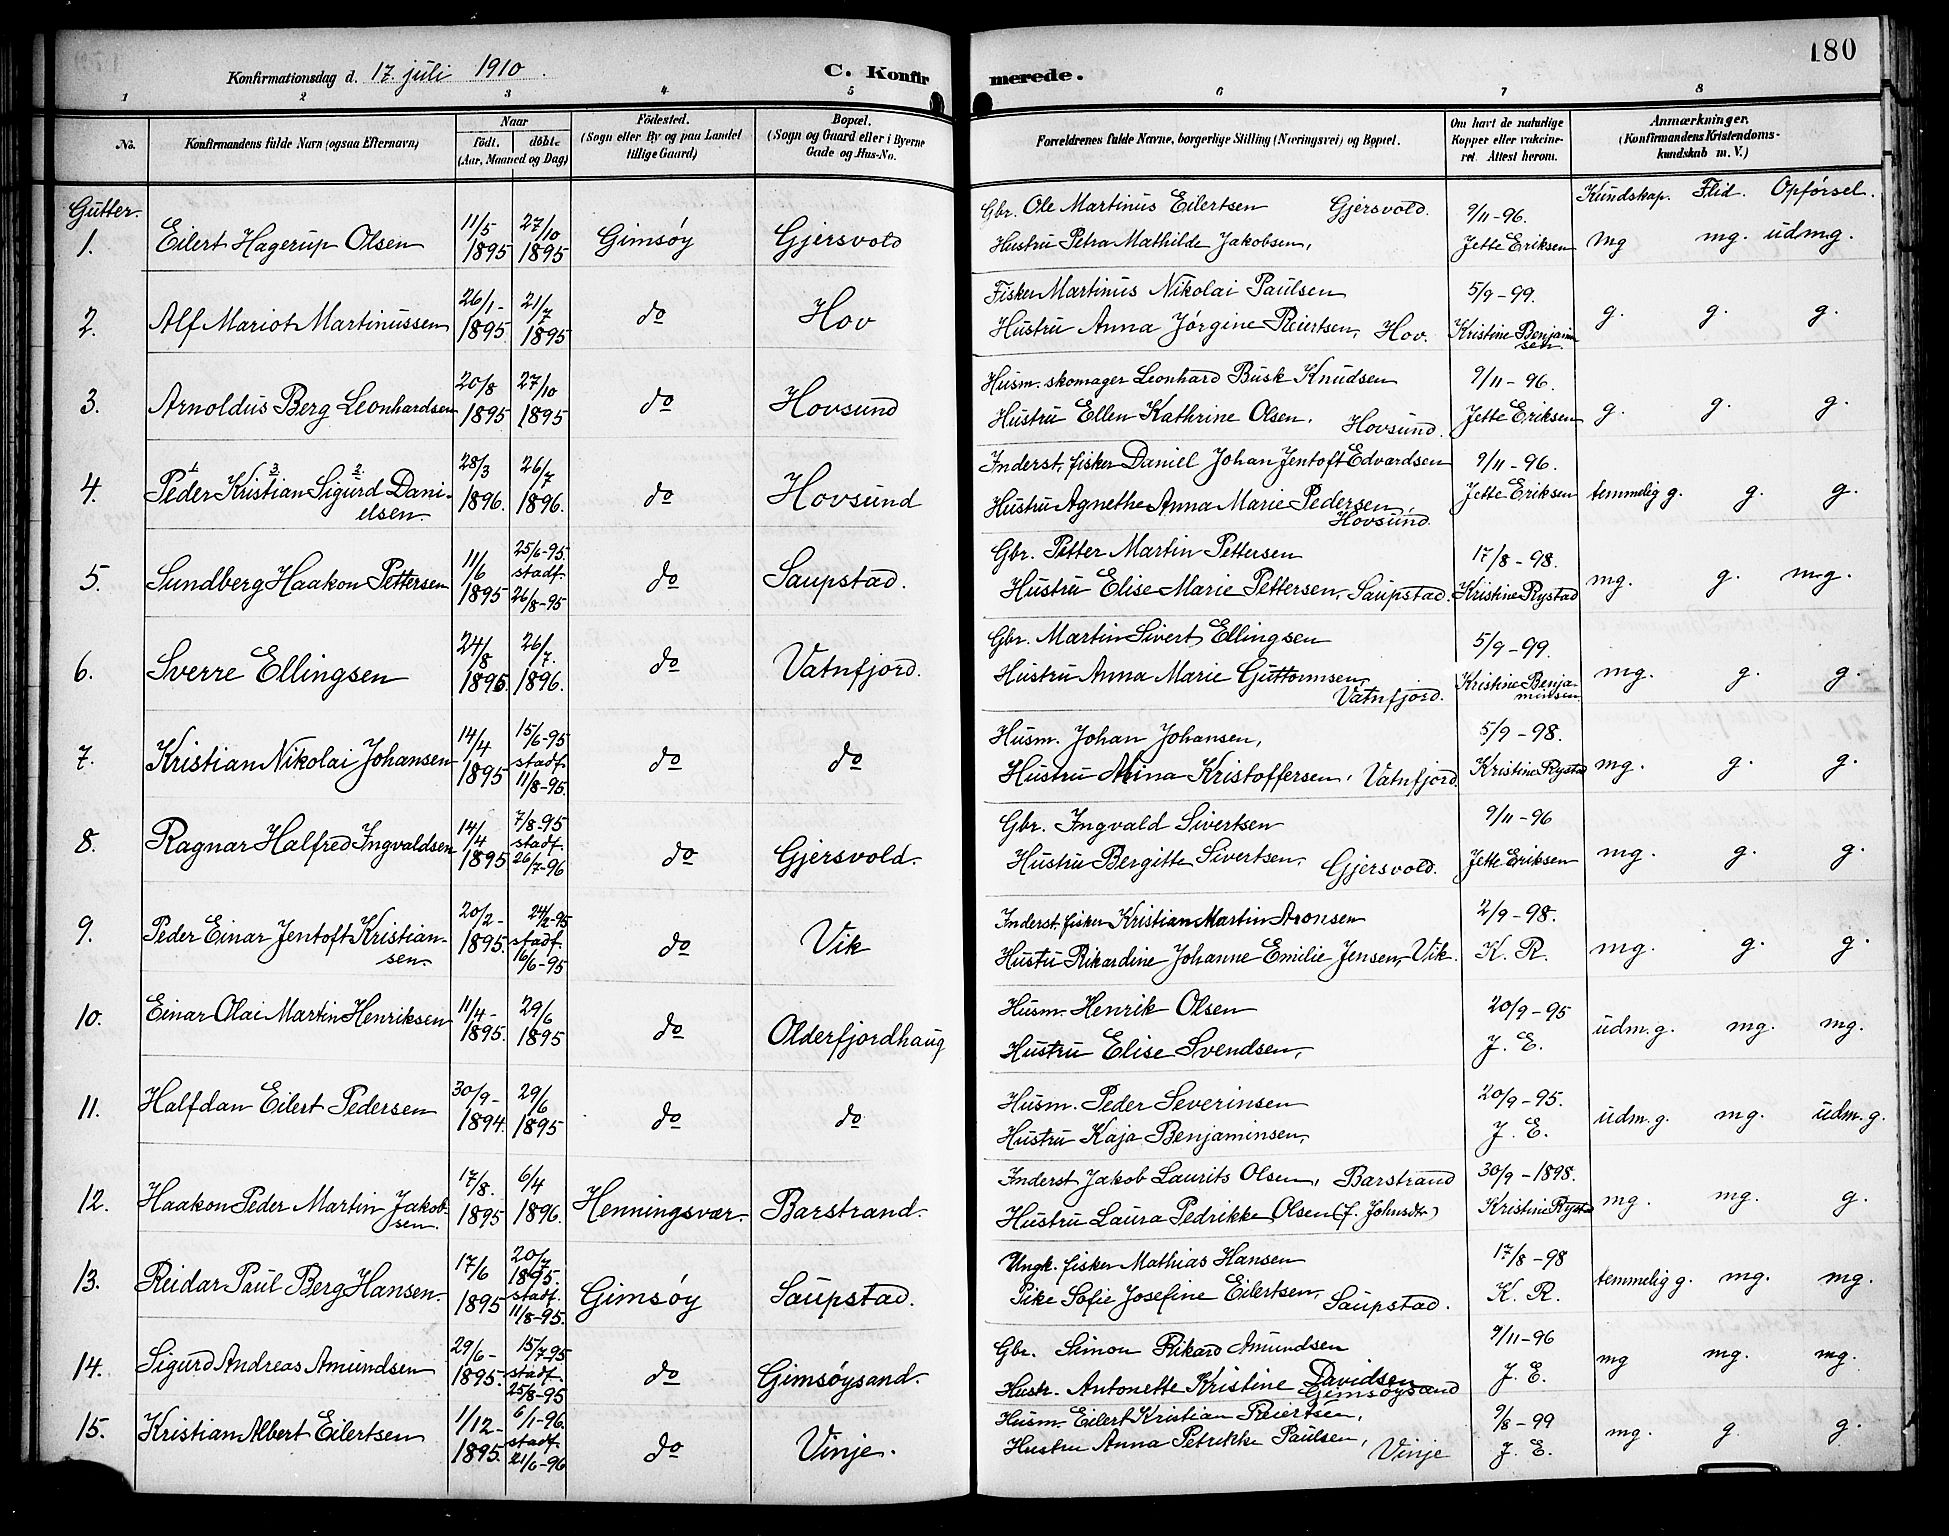 180
Konfirmationsdag d. 17. juli 1910. C. Konfirmerede.
1 2 3 4 5 6 7 8
No. Konfirmandens fulde Navn (ogsaa Efternavn) Naar født. døbt. (Aar, Maaned og Dag) Fødested. (Sogn eller By og paa Landet tillige Gaard) Bopæl. (Sogn og Gaard eller i Byerne Gade og Hus-No. Forældrenes fulde Navne, borgerlige Stilling (Næringsvei) og Bopæl. Om havt de naturlige Kopper eller vakcineret. Attest herom. Anmærkninger. (Konfirmandens Kristendomskundskab m. V.)
Gutter. Kundskap. Flid. Opførsel.
1. Eilert Hagerup Olsen 11/5 1895 27/10 1895 Gimsøy Gjersvold Gbr. Ole Martinus Eilertsen Gjersvold. 9/11-96. mg mg. udmg.
Hustru Petra Mathilde Jakobsen, Jette Eriksen
2. Alf Mariot Martinussen 26/1- 1895. 21/7 1895 do Hov Fisker Martinus Nikolai Paulsen 5/9-99. g. g. g.
Hustru Anna Jørgine Reiertsen, Hov. Kristine Benjaminsen.
3. Arnoldus Berg Leonhardsen 20/8 1895 27/10 1895 do Hovsund Husm. skomager Leonhard Busk Knudsen 9/11-96. g. g. g.
Hustru Ellen Kathrine Olsen, Hovsund. Jette Eriksen
4. Peder 1 Kristian 3 Sigurd 2 Danielsen. 28/3 1896. 26/7 1896. do Hovsund Inderst, fisker Daniel Johan Jentoft Edvardsen 9/11-96. temmelig g. g. g.
Hustru Agnethe Anna Marie Pedersen, Hovsund. Jette Eriksen
5. Sundberg Haakon Pettersen 11/6 1895 25/6-95. stadf. 26/8-95 do Saupstad. Gbr. Petter Martin Pettersen 17/8-98. mg. g. mg.
Hustru Elise Marie Pettersen, Saupstad. Kristine Rystad
6. Sverre Ellingsen 24/8 1895. 26/7. 1896. do Vatnfjord. Gbr. Martin Sivert Ellingsen 5/9-99. mg. g. g.
Hustru Anna Marie Guttormsen, Vatnfjord. Kristine Benjaminsen
7. Kristian Nikolai Johansen 14/4 1895 15/6-95 stadf. 11/8-95. do do Husm. Johan Johansen, 5/9-98. mg. g. g.
Hustru Nina Kristoffersen, Vatnfjord. Kristine Rystad
8. Ragnar Halfred Ingvaldsen 14/4 1895 7/8-95 stadf. 26/7-96 do Gjersvold. Gbr. Ingvald Sivertsen 9/11-96 mg. g. g.
Hustru Bergitte Sivertsen, Gjersvold. Jette Eriksen
9. Peder Einar Jentoft Kristiansen. 20/2- 1895. 24/2-95 stadf. 16/6-95 do Vik Inderst. fisker Kristian Martin Aronsen 2/9-98. mg. g. g.
Hustru Rikardine Johanne Emilie Jensen, Vik. K. R.
10. Einar Olai Martin Henriksen 11/4- 1895. 29/6 1895 do Olderfjordhaug Husm. Henrik Olsen 20/9-95 udm.g. mg. mg.
Hustru Elise Svendsen, J. E.
11. Halfdan Eilert Pedersen 30/9- 1894. 29/6 1895 do do Husm. Peder Severinsen 20/9-95. udm.g. mg. udm.g.
Hustru Kaja Benjaminsen, J. E.
12. Haakon Peder Martin Jakobsen. 17/8. 1895 6/4 1896. Henningsvær. Barstrand. Inderst Jakob Laurits Olsen, Barstrand 30/9-1898. mg. mg. g.
Hustru Laura Pedrikke Olsen (f. Johnsdtr) Kristine Rystad
13. Reidar Paul Berg Hansen. 17/6 1895 20/7 1895. stadf. 11/8-95. Gimsøy Saupstad. Ungk. fisker Mathias Hansen 17/8-98 temmelig g. mg. mg.
Pike Sofie Josefine Eilertsen, Saupstad. K. R.
14. Sigurd Andreas Amundsen 29/6- 1895. 15/7-95 stadf. 25/8-95 do Gimsøysand. Gbr. Simon Rikard Amundsen 9/11-96 mg mg. mg.
Hustr. Antonette Kristine Davidsen Gimsøysand J. E.
15. Kristian Albert Eilertsen 1/12- 1895. 6/1-96. stadf. 21/6-96 do Vinje. Husm. Eilert Kristian Reiertsen, 9/8-99 mg. g. g.
Hustru Anna Petrikke Paulsen, Vinje J. E.